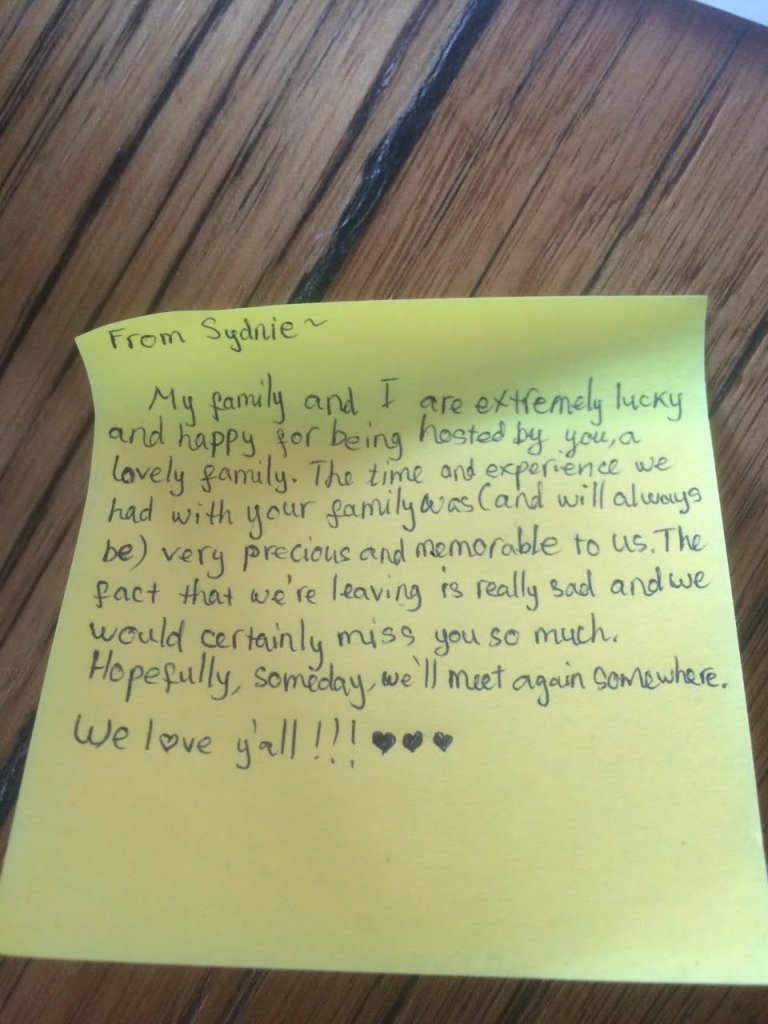 From Sydnie ~
My family and I are extremely lucky
and happy for being hosted by you, a
lovely family. The time and experience we
had with your family was (and will always
be) very precious and memorable to us. The
fact that we're leaving is really sad and we
would certainly miss you so much.
Hopefully, someday, we'll meet again somewhere.
We love y'all!!! ♥♥♥